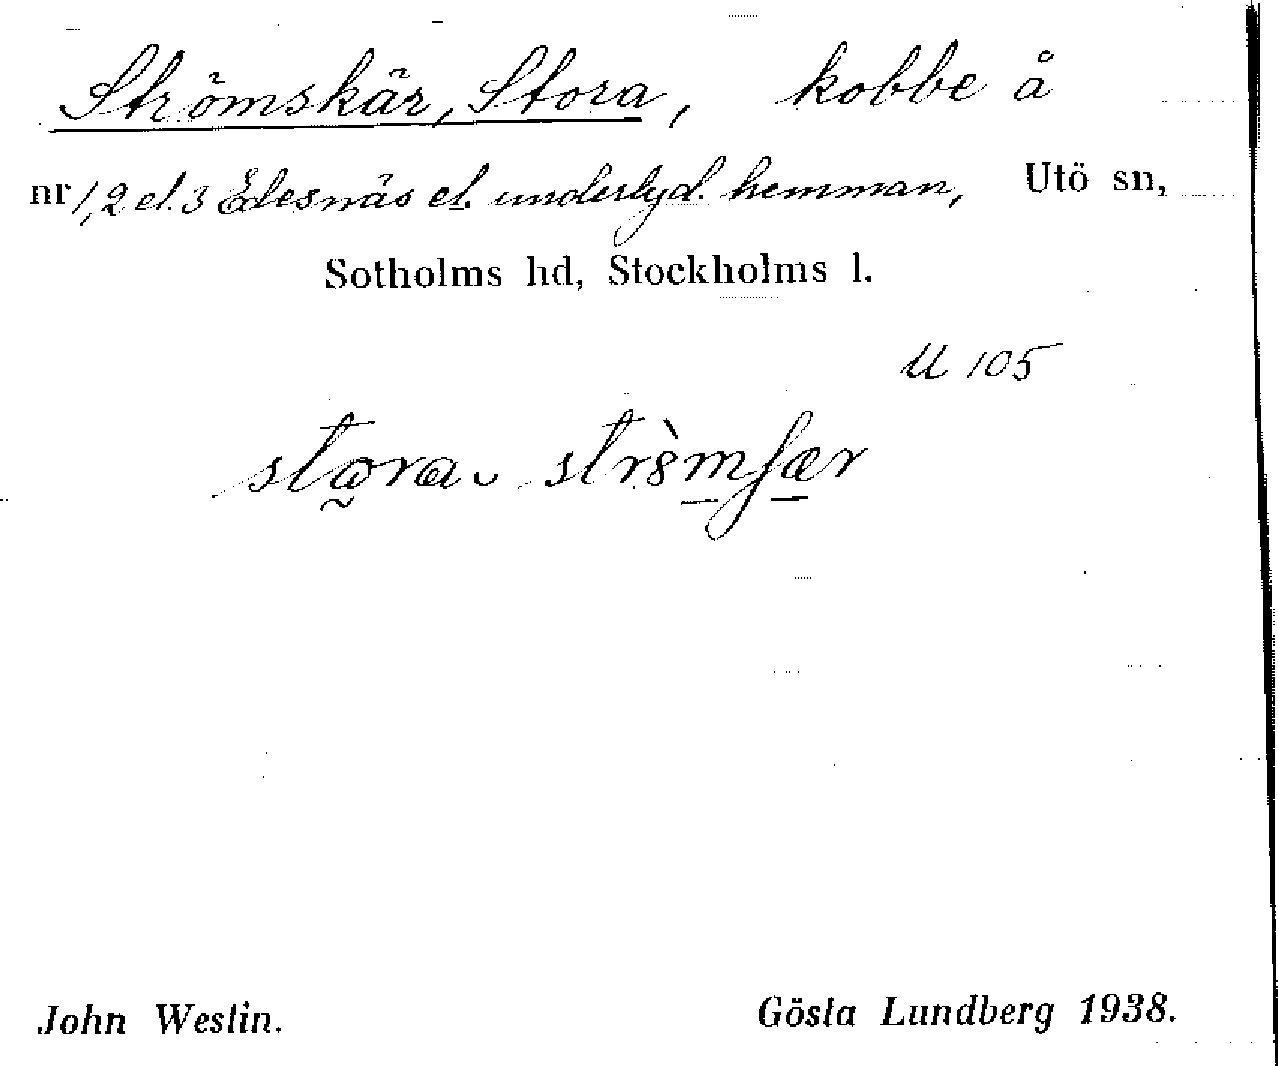 Strömskär, Stora, kobbe å
nr 1, 2 el. 3 Edesnäs el. underlyd. hemman, Utö sn,
Sotholms hd, Stockholms l.
U 105
John Westin. Gösta Lundberg 1938.